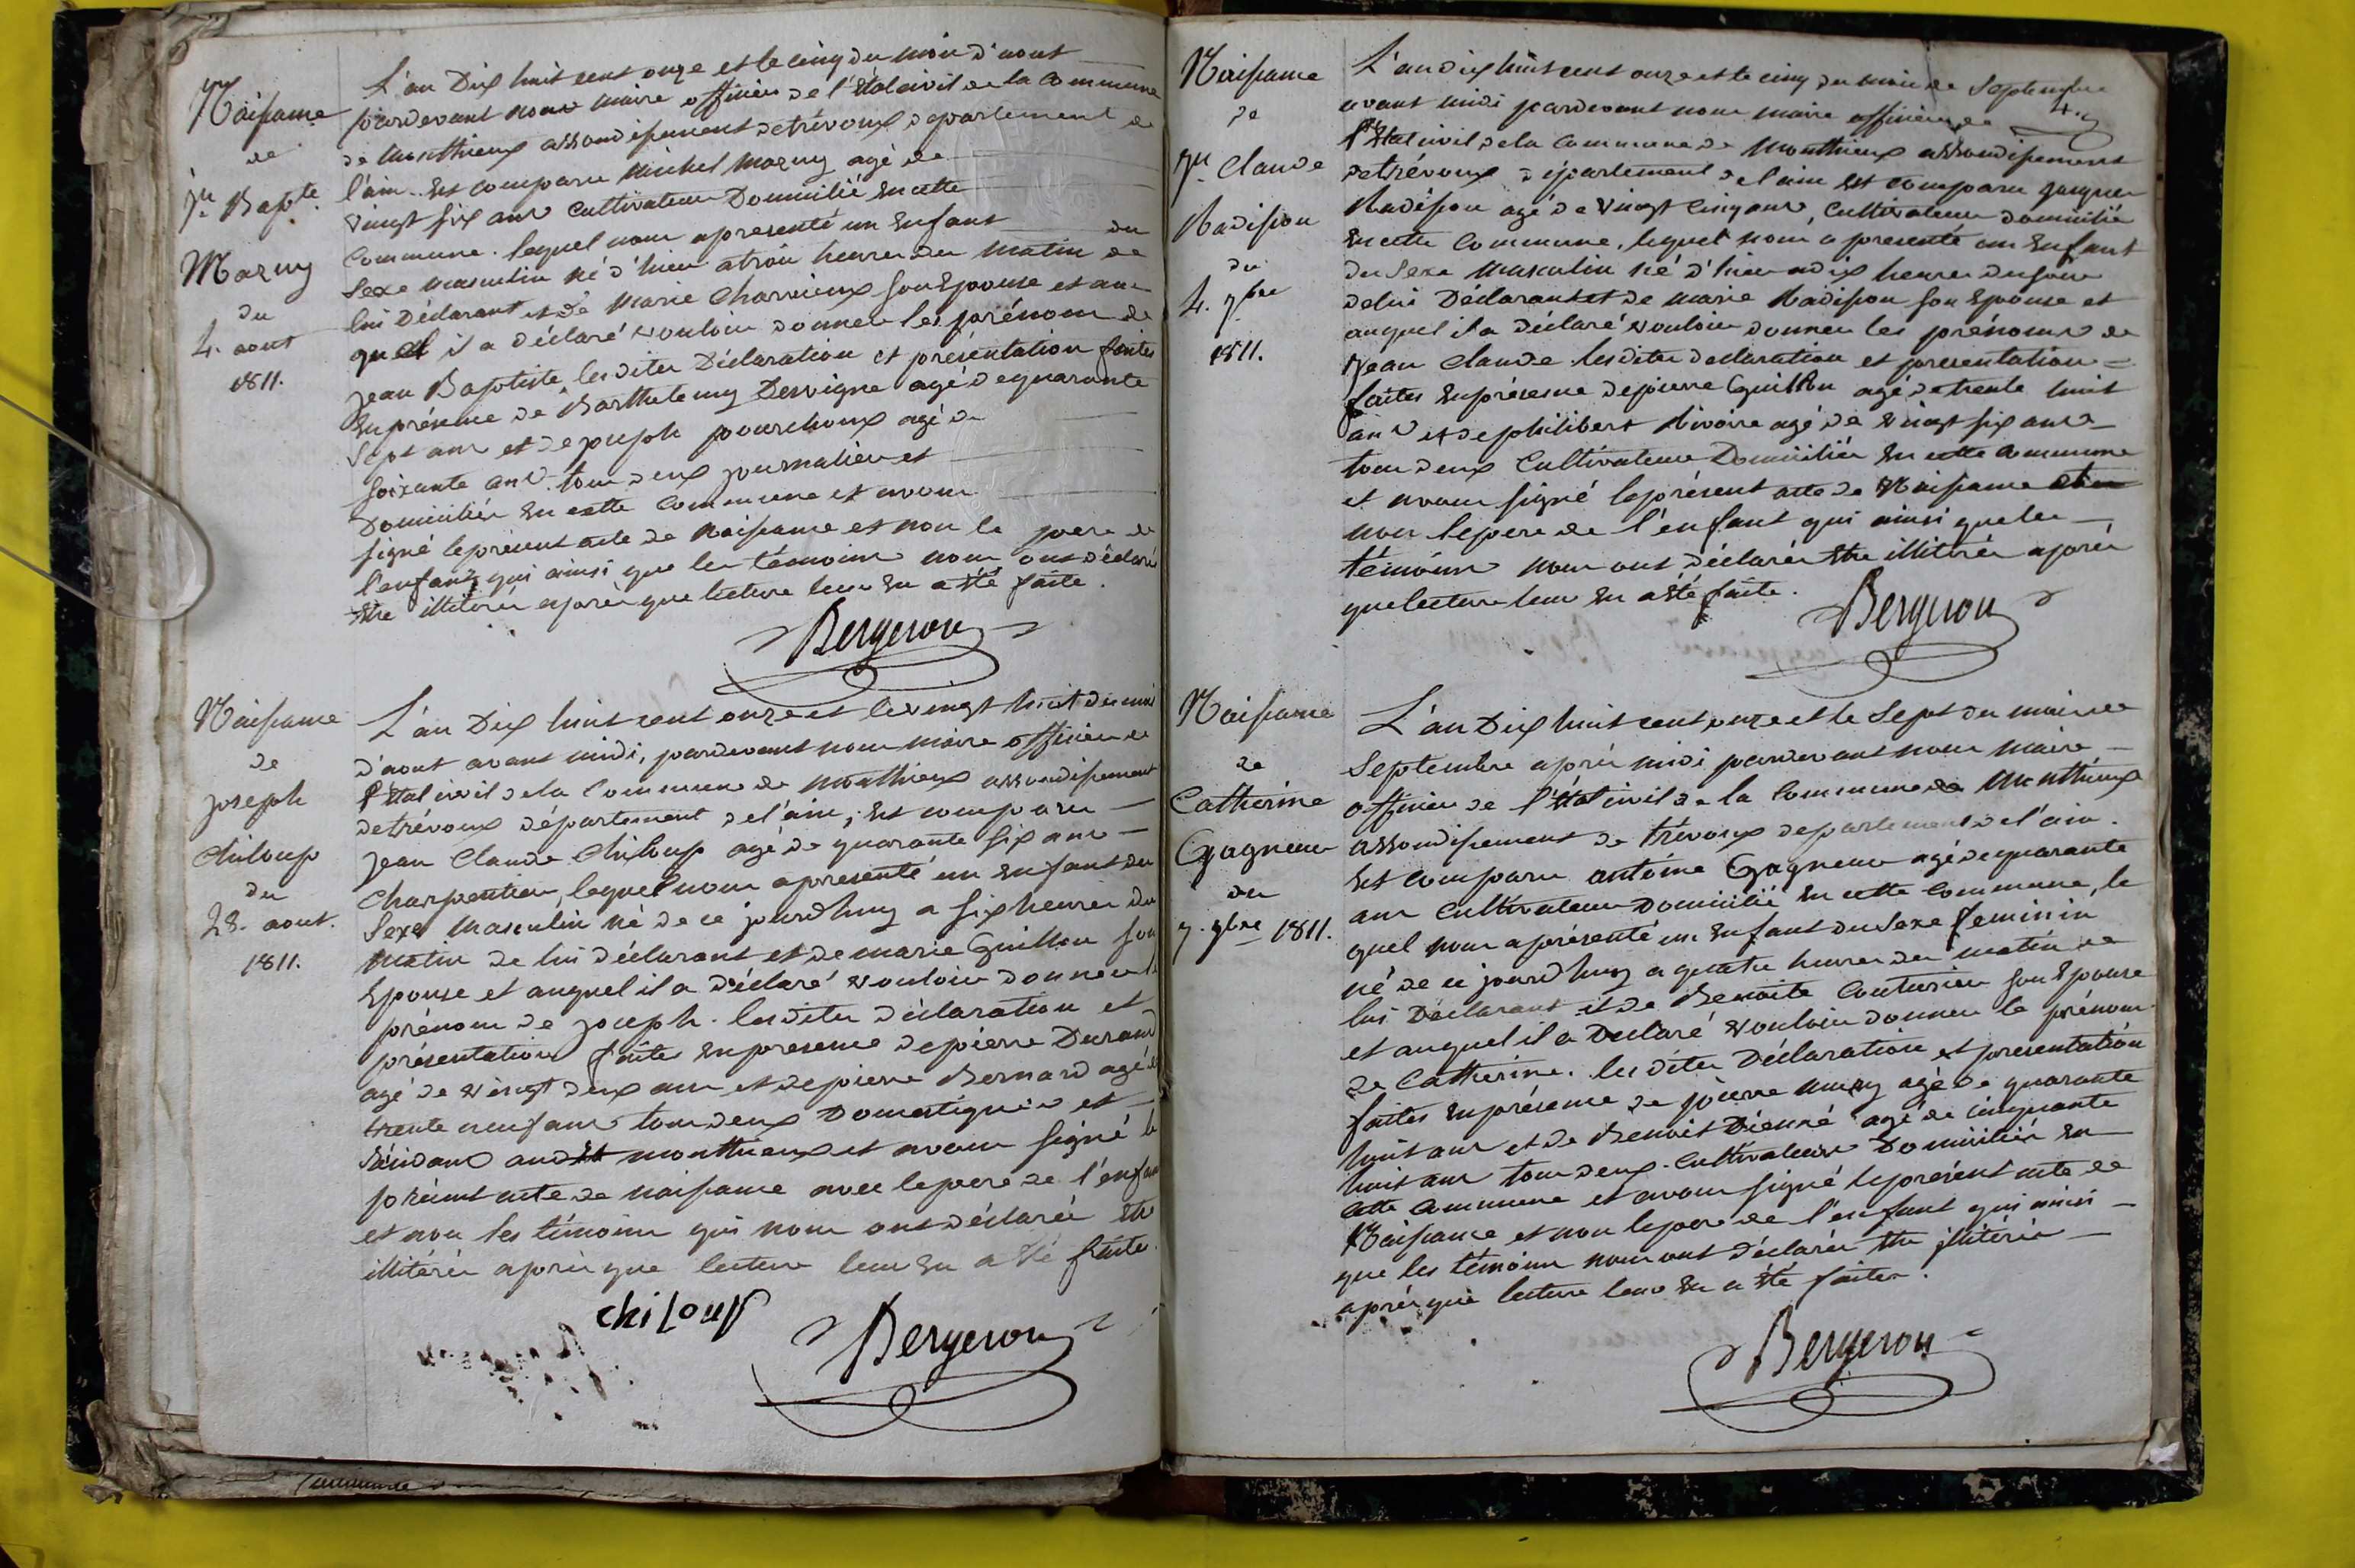 Naissance
de
Jn Bapte
Mazuy
du
4. aout
1811.
L'an Dix huit cent onze et le cinq du mois d'aout
pardevant nous maire officier de l'Etat civil de la Commune
de Monthieux arrondissement de trévoux departement de
l'ain. Est comparu Michel Mazuy agé de
vingt six ans Cultivateur Domicilié en cette
Commune. lequel nous a presenté un Enfant du
Sexe masculin né d'hier a trois heures du matin de
lui Déclarant et de Marie Charvieux son Epouse et au
quel il a déclaré vouloir donner les prénoms de
Jean Baptiste les dites Déclaration et présentation faites
En présence de Barthelemy Dervigne agé de quarante
Sept ans et de joseph pourchoux agé de
soixante ans. tous deux journaliers et
Domiciliés en cette Commune et avons
signé le présent acte de Naissance et non le pere de
l'enfant qui ainsi que les témoins nous ont déclaré
Etre illitérés apres que lecture leur en a été faite.
Bergeron
Naissance
de
joseph
Chiloup
du
28. aout.
1811.
L'an Dix huit cent onze et le vingt huit du mois
d'aout avant midi, pardevant nous maire officier de
l'Etat civil de la Commune de Monthieux arrondissement
de trévoux département de l'ain; Est comparu
Jean Claude Chiloup agé de quarante six ans
Charpentier, lequel nous a presenté un Enfant du
Sexe Masculin né de ce jourd'huy a six heures du
Matin de lui déclarant et de marie Guillon son
Epouse et auquel il a déclaré vouloir donner le
prénom de joseph. les dites déclaration et
présentation faites En presence de pierre Durand
agé de vingt deux ans et de pierre Bernard agé de
trente neuf ans tous deux Domestiques et
Résidans audit monthieux et avons signé le
présent acte de naissance avec le pere de l'enfant
et non les témoins qui nous ont déclarés Etre
illitérés après que lecture leur en a été faite.
chiLoup
Bergeron
Naissance
de
Jn Claude
Radisson
du
4. 7bre
1811.
L'an dix huit cent onze et le cinq du mois de Septembre
avant midi pardevant nous maire officier de
l'Etat civil de la Commune de Monthieux arrondissement
de trévoux département de l'ain est comparu jacques
Radisson agé de vingt cinq ans, Cultivateur domicilié
En cette Commune, lequel nous a presenté un Enfant
du Sexe Masculin né d'hier a dix heures du soir
de lui Déclarant et de Marie Radisson son Epouse et
auquel il a déclaré vouloir donner les prénoms de
Jean Claude les dites declaration et presentation
faites En présence de pierre Guillon agé de trente huit
ans et de philibert Rivoire agé de vingt six ans
tous deux Cultivateurs Domiciliés En cette Commune
et avons signé le présent acte de Naissance et
non le pere de l'enfant qui ainsi que les
témoins nous ont déclarés Etre illitérés après
que lecture leur en a été faite.
Bergeron
Naissance
de
Catherine
Gagneur
du
7. 7bre 1811.
L'an Dix huit cent onze et le Sept du mois de
Septembre après midi pardevant nous Maire
officier de l'Etat civil de la Commune de Monthieux
arrondissement de trévoux departement de l'ain.
Est comparu antoine Gagneur agé de quarante
ans Cultivateur Domicilié En cette Commune, le
quel nous a présenté un Enfant du Sexe feminin
né de ce jourd'huy a quatre heures du matin de
lui Déclarant et de Benoite Couturier son Epouse
et auquel il a Déclaré vouloir donner le prénom
de Catherine. les dites Déclaration et presentation
faites En présence de pierre Mazuy agé de quarante
huit ans et de Benoit Dienné agé de cinquante
huit ans tous deux Cultivateurs Domiciliés En
cette Commune et avons signé le présent acte de
Naissance et non le pere de l'enfant qui ainsi
que les témoins nous ont déclarés Etre illitérés
après que lecture leur en a été faites.
Bergeron